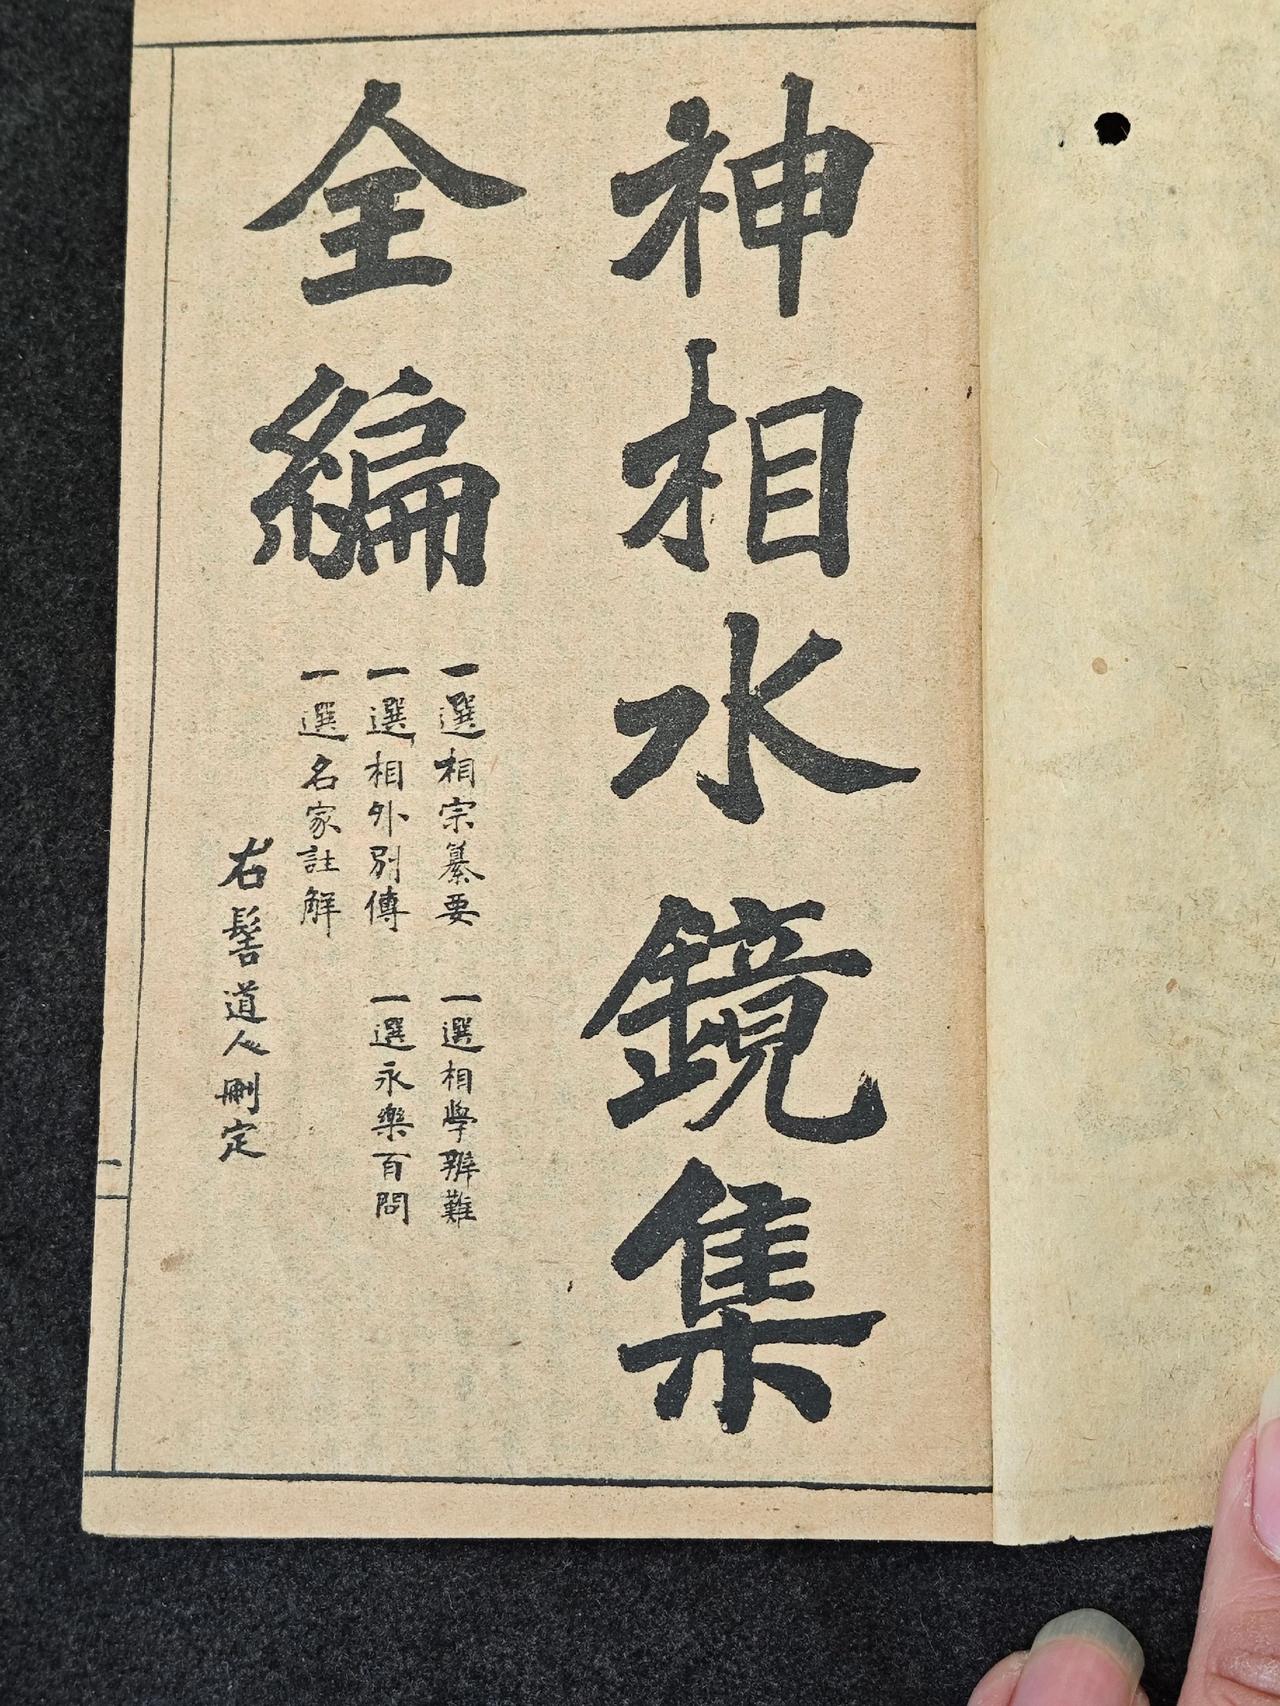 神相水鏡集
全編
一選相宗纂要 一選相學辨難
一選相外別傳 一選永樂百問
一選名家註解
右髻道人刪定
一